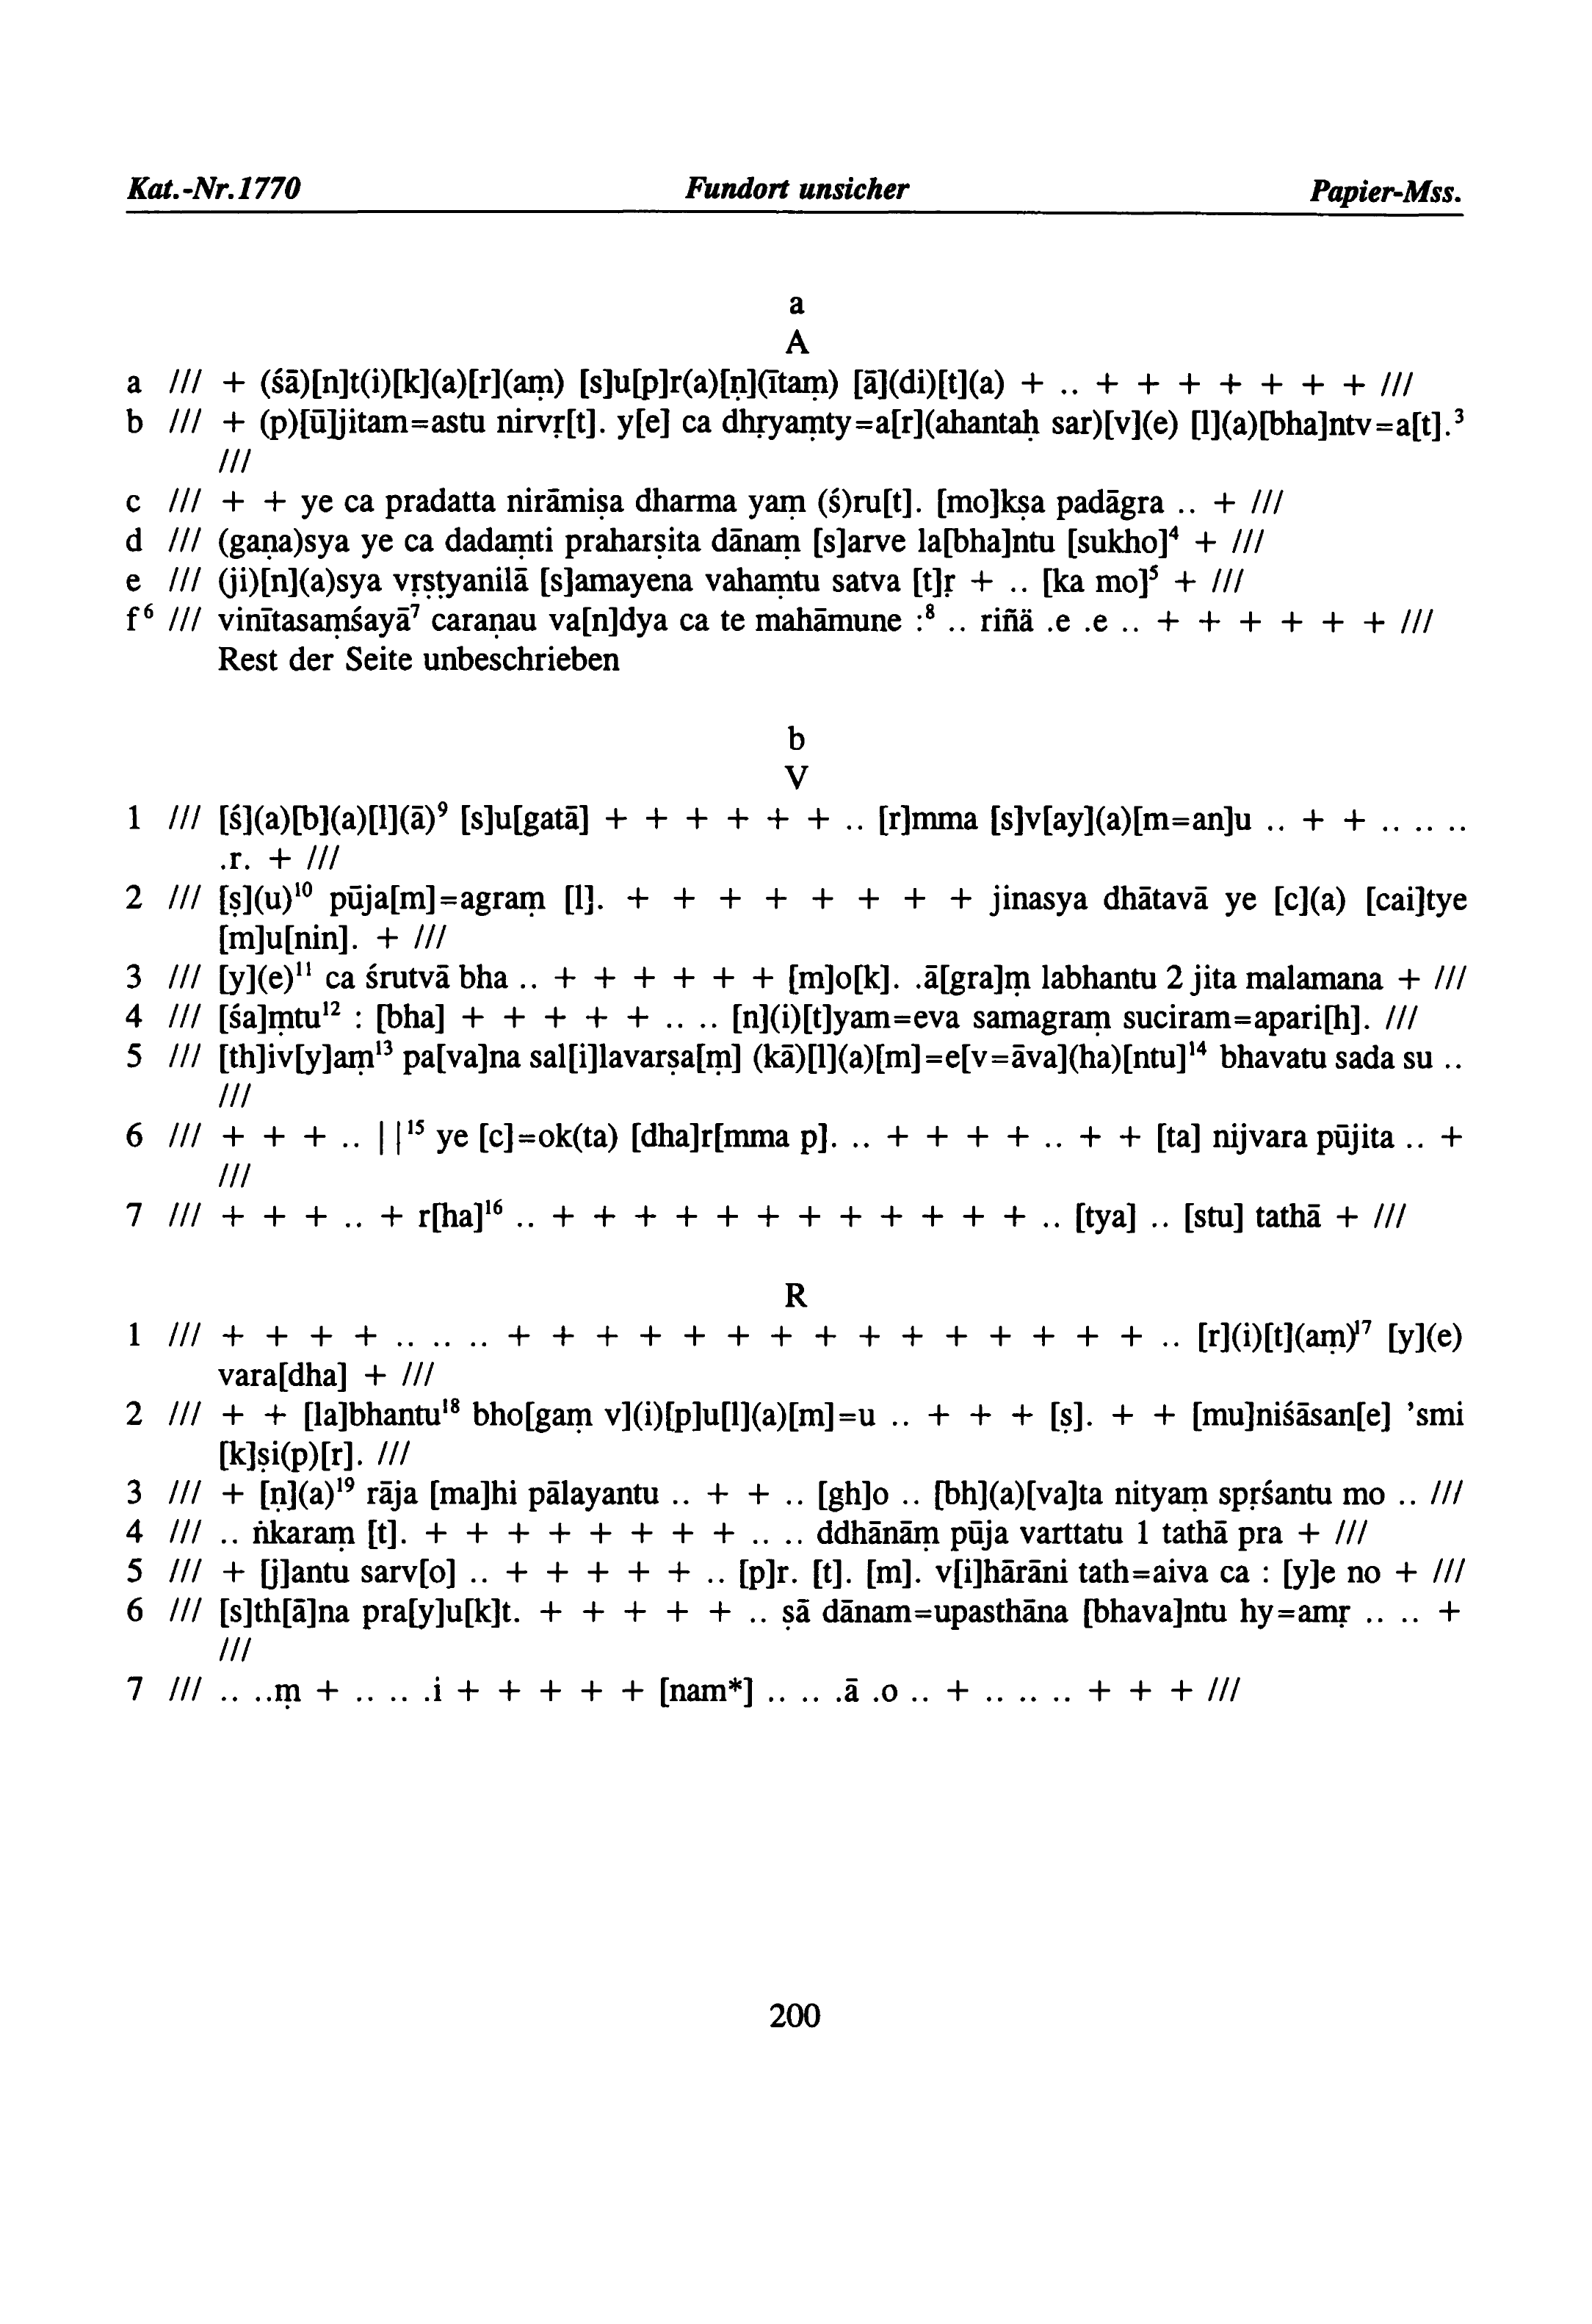 Kat.-Nr.1770 Fundort unsicher Papier-Mss.
a
A
a /// + (śā)[n]t(i)[k](a)[r](aṃ) [s]u[p]r(a)[ṇ](ītaṃ) [ā](di)[t](a) + .. + + + + + + + ///
b /// + (p)[ū]jitam=astu nirvṛ[t]. y[e] ca dhṛyaṃty=a[r](ahantaḥ sar)[v](e) [l](a)[bha]ntv=a[t].³
///
c /// + + ye ca pradatta nirāmiṣa dharma yaṃ (ś)ru[t]. [mo]kṣa padāgra .. + ///
d /// (gaṇa)sya ye ca dadaṃti praharṣita dānaṃ [s]arve la[bha]ntu [sukho]⁴ + ///
e /// (ji)[n](a)sya vṛṣṭyanilā [s]amayena vahaṃtu satva [t]ṛ + .. [ka mo]⁵ + ///
f⁶ /// vinītasaṃśayā⁷ caraṇau va[n]dya ca te mahāmune :⁸ .. riñä .e .e .. + + + + + + ///
Rest der Seite unbeschrieben
b
V
1 /// [ś](a)[b](a)[l](ā)⁹ [s]u[gatā] + + + + + + .. [r]mma [s]v[ay](a)[m=an]u .. + + .. .. ..
.r. + ///
2 /// [ṣ](u)¹⁰ pūja[m]=agraṃ [l]. + + + + + + + + jinasya dhātavā ye [c](a) [cai]tye
[m]u[nin]. + ///
3 /// [y](e)¹¹ ca śrutvā bha .. + + + + + + [m]o[k]. .ā[gra]ṃ labhantu 2 jita malamana + ///
4 /// [śa]ṃtu¹² : [bha] + + + + + .. .. [n](i)[t]yam=eva samagraṃ suciram=apari[h]. ///
5 /// [th]iv[y]aṃ¹³ pa[va]na sal[i]lavarṣa[ṃ] (kā)[l](a)[m]=e[v=āva](ha)[ntu]¹⁴ bhavatu sada su ..
///
6 /// + + + .. ||¹⁵ ye [c]=ok(ta) [dha]r[mma p]. .. + + + + .. + + [ta] nijvara pūjita .. +
///
7 /// + + + .. + r[ha]¹⁶ .. + + + + + + + + + + + + .. [tya] .. [stu] tathā + ///
R
1 /// + + + + .. .. .. + + + + + + + + + + + + + + + .. [r](i)[t](aṃ)¹⁷ [y](e)
vara[dha] + ///
2 /// + + [la]bhantu¹⁸ bho[gaṃ v](i)[p]u[l](a)[m]=u .. + + + [ṣ]. + + [mu]niśāsan[e] ’smi
[k]ṣi(p)[r]. ///
3 /// + [ṇ](a)¹⁹ rāja [ma]hi pālayantu .. + + .. [gh]o .. [bh](a)[va]ta nityaṃ spṛśantu mo .. ///
4 /// .. ṅkaraṃ [t]. + + + + + + + + .. .. ddhānāṃ pūja varttatu 1 tathā pra + ///
5 /// + [j]antu sarv[o] .. + + + + + .. [p]r. [t]. [m]. v[i]hārāni tath=aiva ca : [y]e no + ///
6 /// [s]th[ā]na pra[y]u[k]t. + + + + + .. ṣā dānam=upasthāna [bhava]ntu hy=amṛ .. .. +
///
7 /// .. ..ṃ + .. .. .i + + + + + [nam*] .. .. .ā .o .. + .. .. .. + + + ///
200